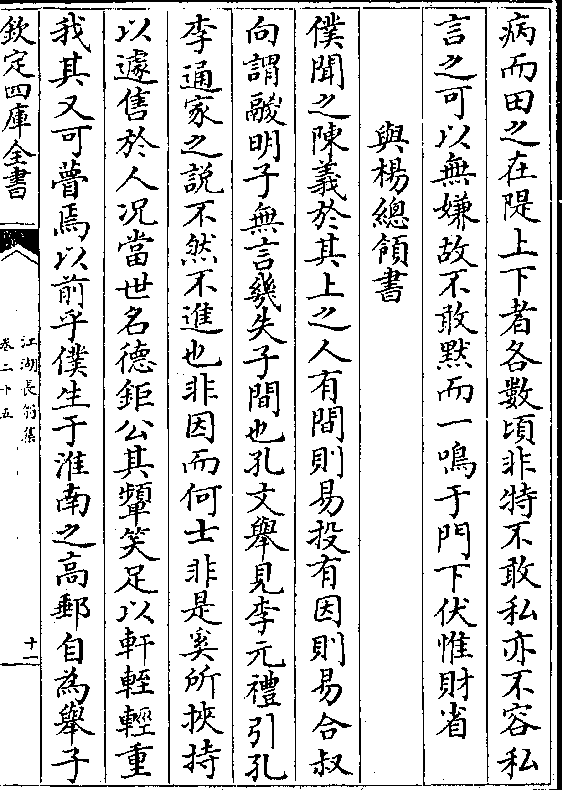 病而田之在隄上下者各數頃非特不敢私亦不容私
言之可以無嫌故不敢黙而一鳴于門下伏惟財省
與楊總領書
僕聞之陳義於其上之人有間則易投有因則易合叔
向謂鬷明子無言幾失子間也孔文舉見李元禮引孔
李通家之説不然不進也非因而何士非是奚所挾持
以遽售於人况當世名德鉅公其顰笑足以軒輊輕重
我其又可瞢焉以前乎僕生于淮南之高郵自為舉子
欽定四庫全書
江湖長翁集
卷二十五
十二